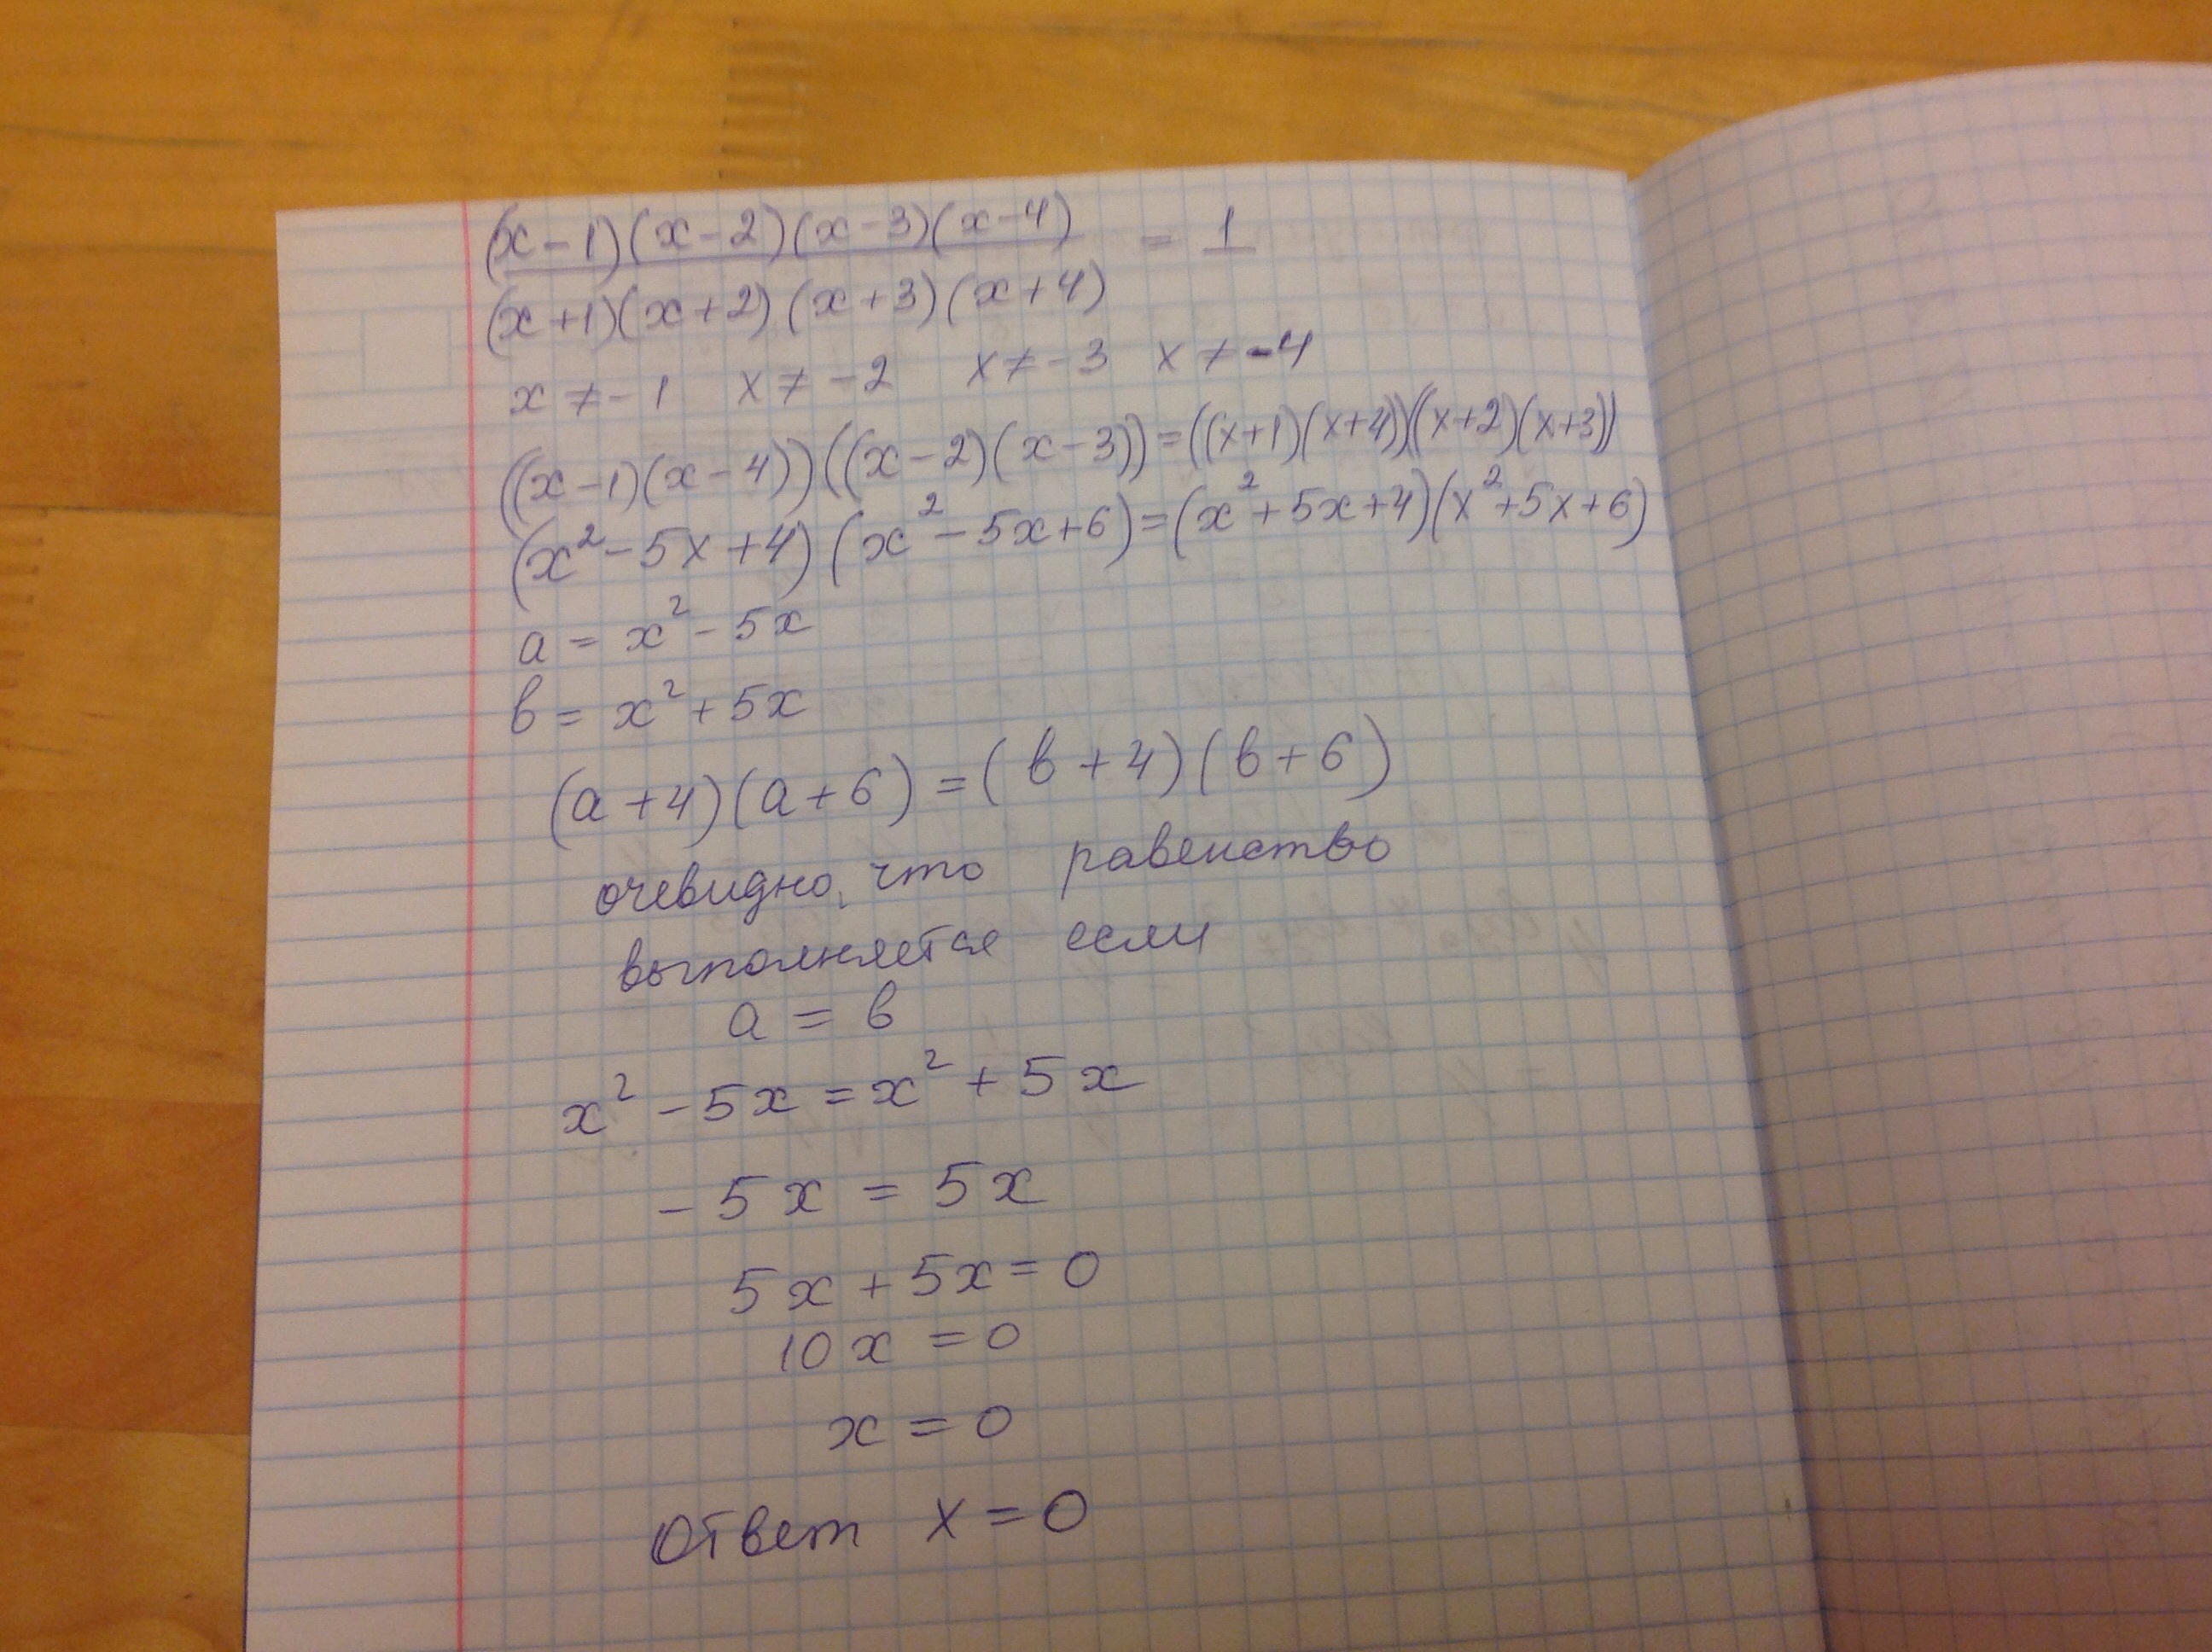 (x-1)(x-2)(x-3)(x-4) = 1
(x+1)(x+2)(x+3)(x+4)
x ≠ -1 x ≠ -2 x ≠ -3 x ≠ -4
((x-1)(x-4))((x-2)(x-3))=((x+1)(x+4))(x+2)(x+3))
(x²-5x+4)(x²-5x+6)=(x²+5x+4)(x²+5x+6)
a = x²-5x
в = x²+5x
(a+4)(a+6)=(в+4)(в+6)
очевидно, что равенство
выполняется если
a = в
x²-5x=x²+5x
-5x = 5x
5x+5x=0
10x=0
x=0
Ответ x=0